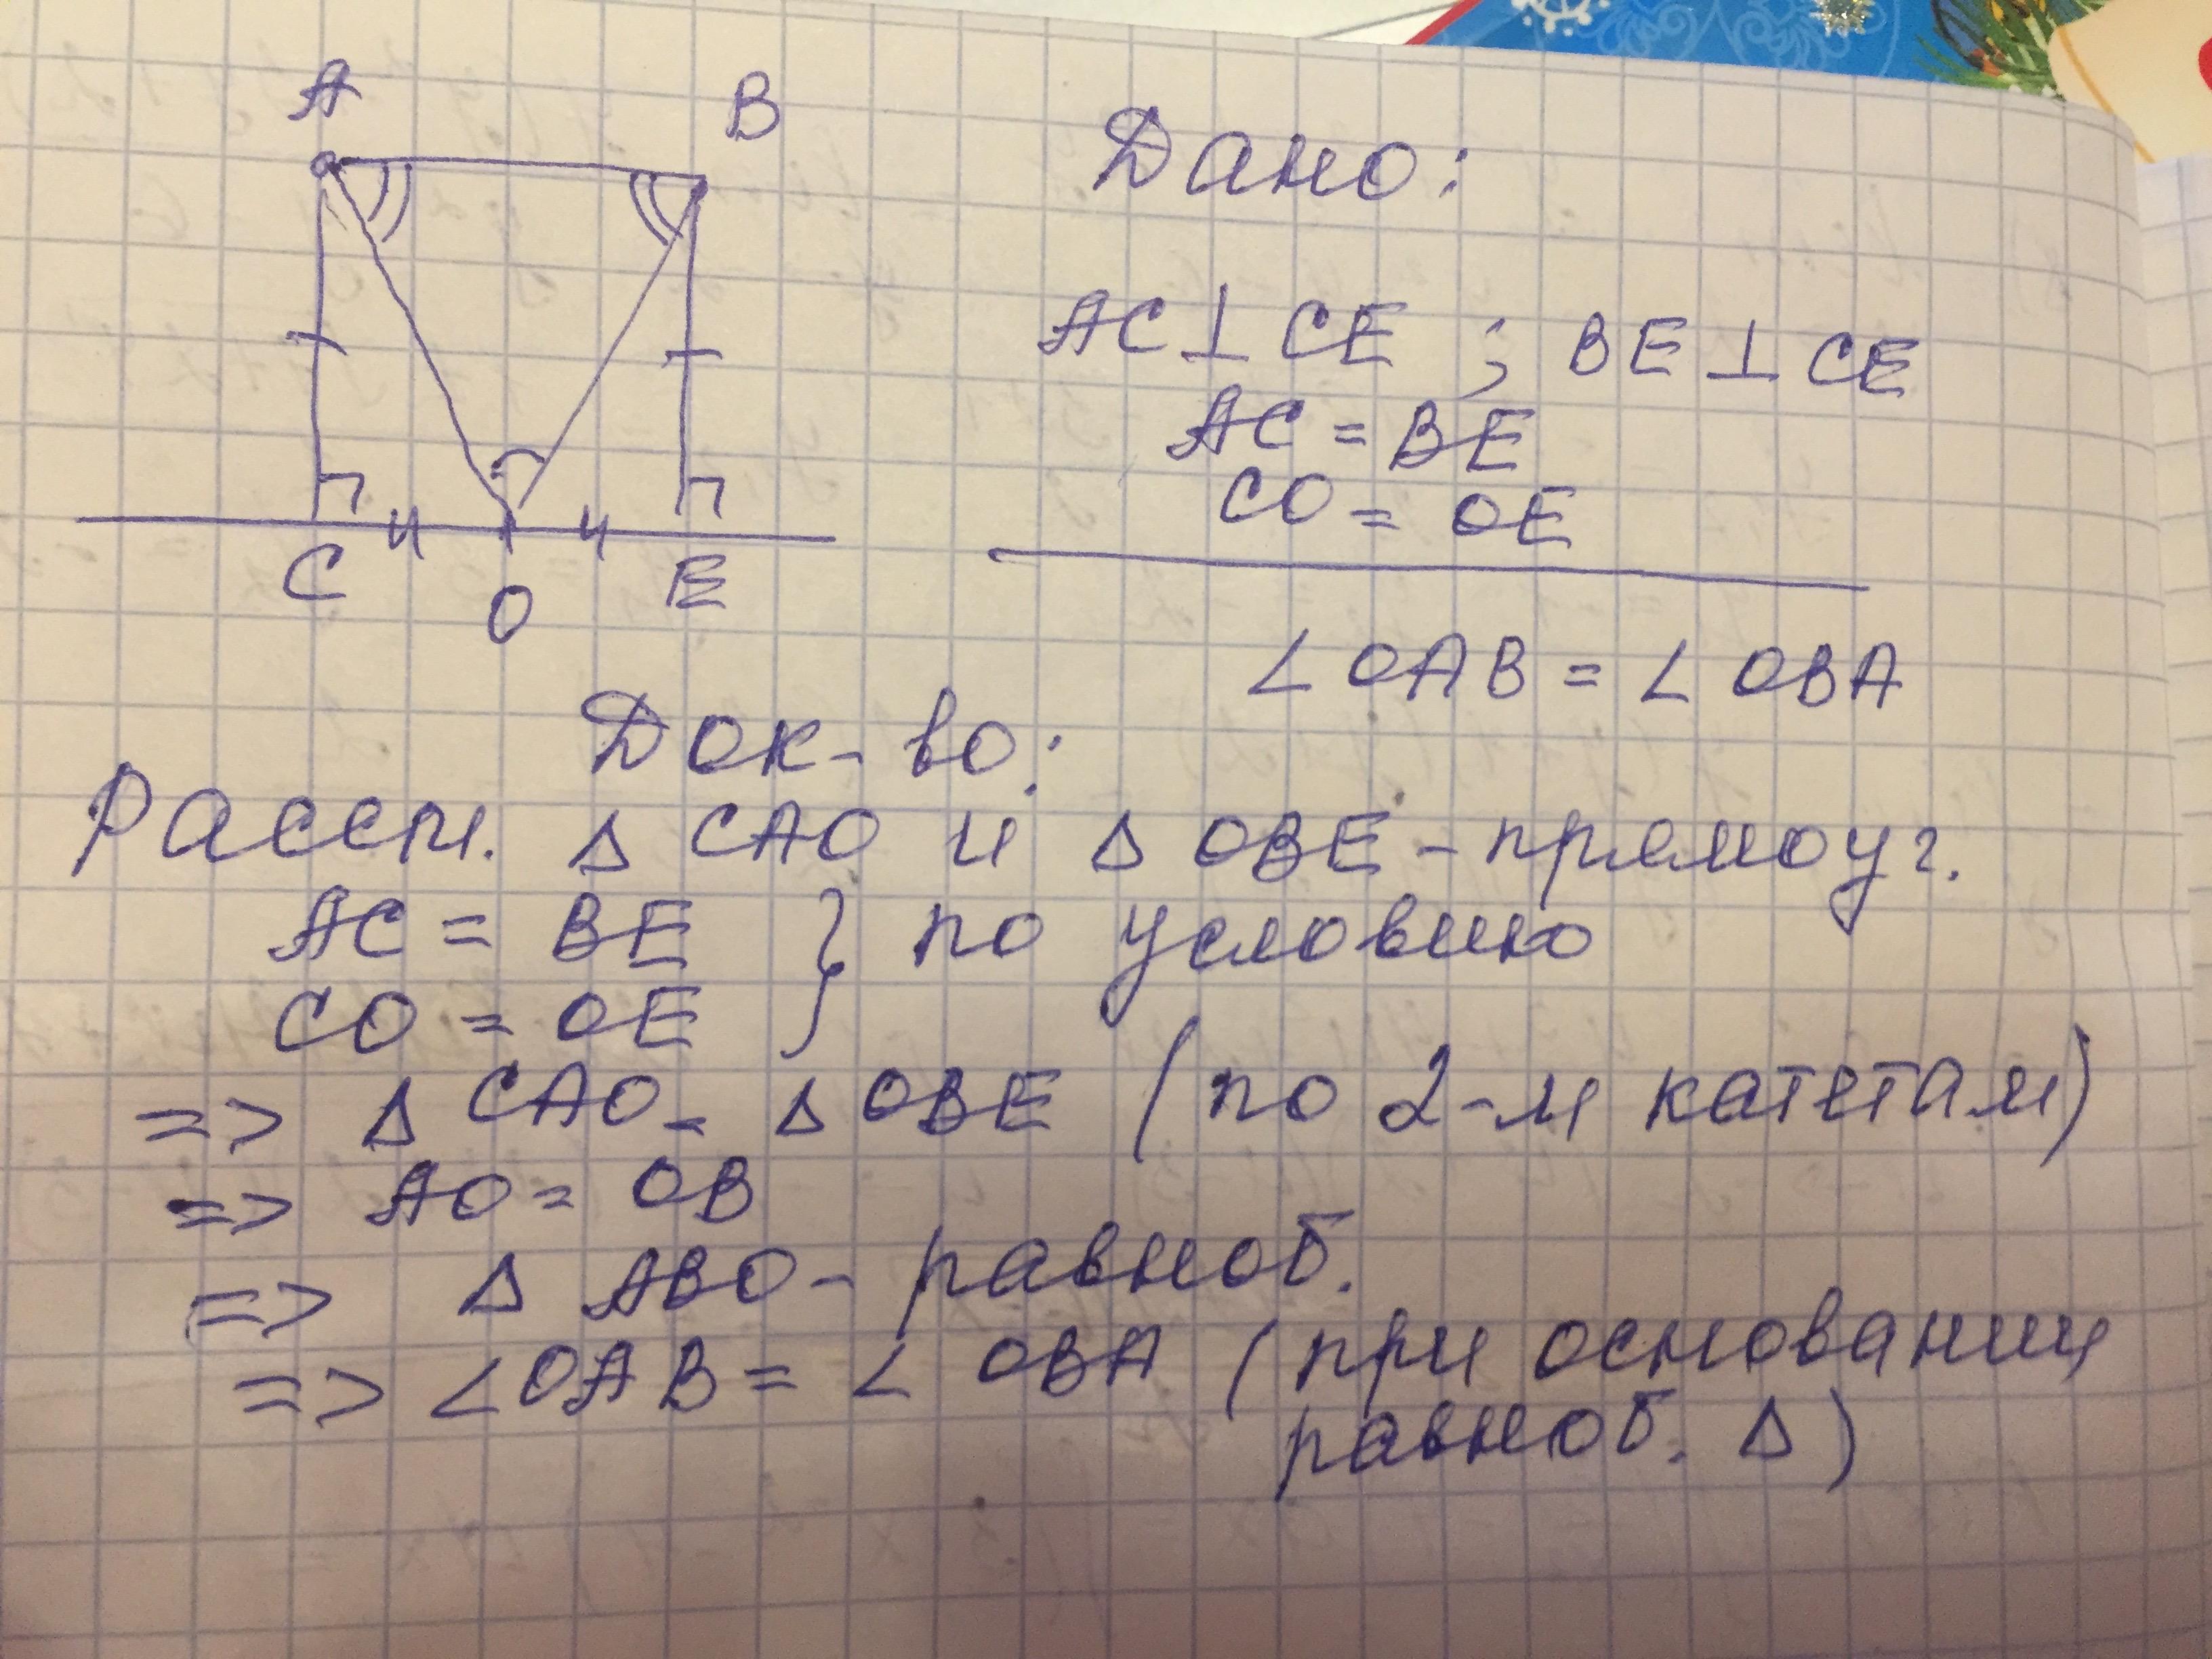 A
B
C
O
E
Дано:
AC ⊥ CE ; BE ⊥ CE
AC = BE
CO = OE
∠ OAB = ∠ OBA
Док-во:
Рассм. Δ CAO и Δ OBE - прямоуг.
AC = BE } по условию
CO = OE
=> Δ CAO = Δ OBE (по 2-м катетам)
=> AO = OB
=> Δ ABO - равноб.
=> ∠OAB = ∠ OBA (при основании
равноб. Δ)